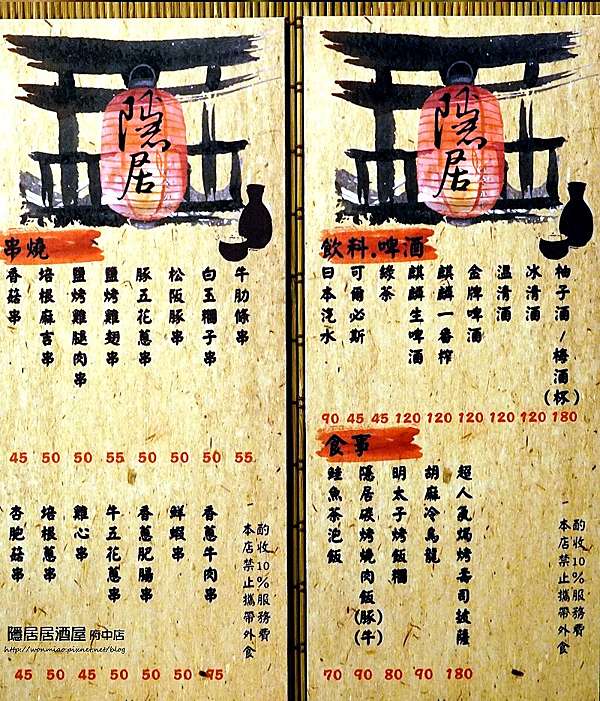 隱居
串燒
牛肋條串
白玉糰子串
松阪豚串
豚五花蔥串
鹽烤雞翅串
鹽烤雞腿肉串
培根麻吉串
香菇串
45 50 50 55 50 50 50 55
香蔥牛肉串
鮮蝦串
香蔥肥腸串
牛五花蔥串
雞心串
培根蔥串
杏胞菇串
酌收10%服務費
本店禁止攜帶外食
45 50 45 50 50 50 95
隱居居酒屋 府中店
http://wonmiao.pixnet.net/blog
隱居
飲料.啤酒
柚子酒/梅酒(杯)
冰清酒
溫清酒
金牌啤酒
麒麟一番榨
麒麟生啤酒
綠茶
可爾必斯
日本汽水
90 45 45 120 120 120 120 120 180
食事
超人氣焗烤壽司披薩
胡麻冷烏龍
明太子烤飯糰
隱居碳烤燒肉飯(豚)(牛)
鮭魚茶泡飯
酌收10%服務費
本店禁止攜帶外食
70 90 80 90 180